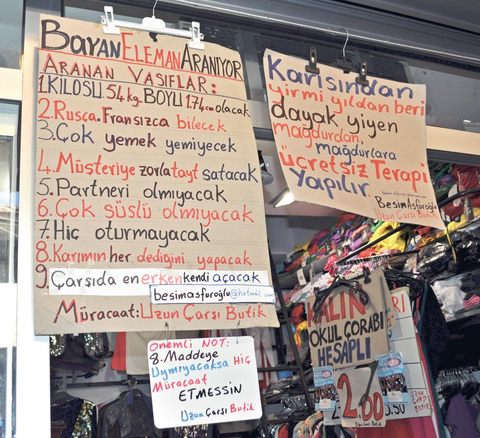 BAYAN ELEMAN ARANIYOR
ARANAN VASIFLAR:
1.KİLOSU 54kg. BOYU 1.74cm olacak
2.Rusca. Fransızca bilecek
3.Çok yemek yemiyecek
4.Müşteriye zorla tayt satacak
5.Partneri olmıyacak
6.Çok süslü olmıyacak
7.Hiç oturmayacak
8.Karımın her dediğini yapacak
9.Çarşıda en erken kendi açacak
besimasfuroğlu@hotmail.com
Müracaat: Uzun Çarşı Butik
Önemli NOT:
8.Maddeye
Uymıyacaksa Hiç
Müracaat
ETMESSİN
Uzun Çarşı Butik
Karısından
yirmi yıldan beri
dayak yiyen
mağdurdan
mağdurlara
ücretsiz Terapi
Yapılır
Besim Asfuroğlu
Uzun Çarşı Butik
KALIN
OKUL ÇORABI
HESAPLI
2.50